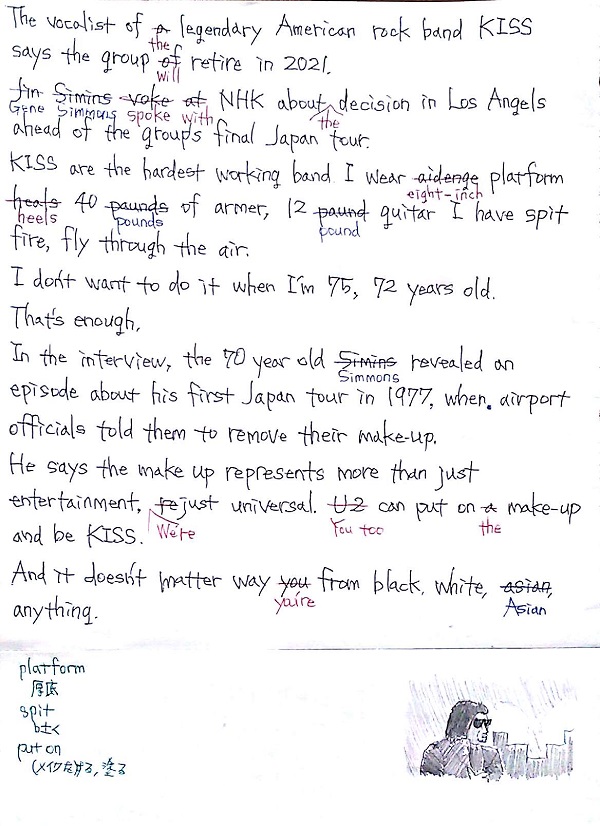 The vocalist of a legendary American rock band KISS
the
says the group of retire in 2021.
will
Jin Simins voke at NHK about decision in Los Angels
Gene Simmons spoke with the
ahead of the group's final Japan tour.
KISS are the hardest working band I wear aidenge platform
eight-inch
heals 40 paunds of armer, 12 paund guitar I have spit
heels pounds pound
fire, fly through the air.
I don't want to do it when I'm 75, 72 years old.
That's enough,
In the interview, the 70 year old Simins revealed an
Simmons
episode about his first Japan tour in 1977, when. airport
officials told them to remove their make-up.
He says the make up represents more than just
entertainment, re just universal. U2 can put on a make-up
We're You too the
and be KISS.
And it doesn't matter way you from black, white, asian,
you're Asian
anything.
platform
厚底
spit
吐く
put on
(メイクを)する, 塗る